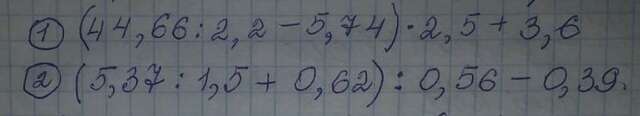 ① (44,66:2,2-5,74)·2,5+3,6
② (5,37:1,5+0,62):0,56-0,39.